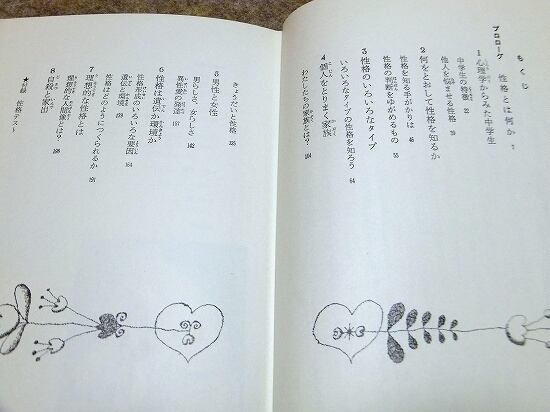 もくじ
プロローグ 性格とは何か 7
1 心理学からみた中学生
中学生の特徴 22
他人を悩ませる性格 29
2 何をとおして性格を知るか
性格を知る手がかりは 46
性格の判断をゆがめるもの 55
3 性格のいろいろなタイプ
いろいろなタイプの性格を知ろう 64
4 個人をとりまく家族
わたしたちの家族とは? 104
きょうだいと性格
5 男性と女性
男らしさ、女らしさ 142
異性愛の発達 151
6 性格は遺伝か環境か
性格形成のいろいろな要因 154
遺伝と環境
7 理想的な性格とは
性格はどのようにつくられるか
理想的な人間像とは? 191
8 自殺と家出
★付録 性格テスト